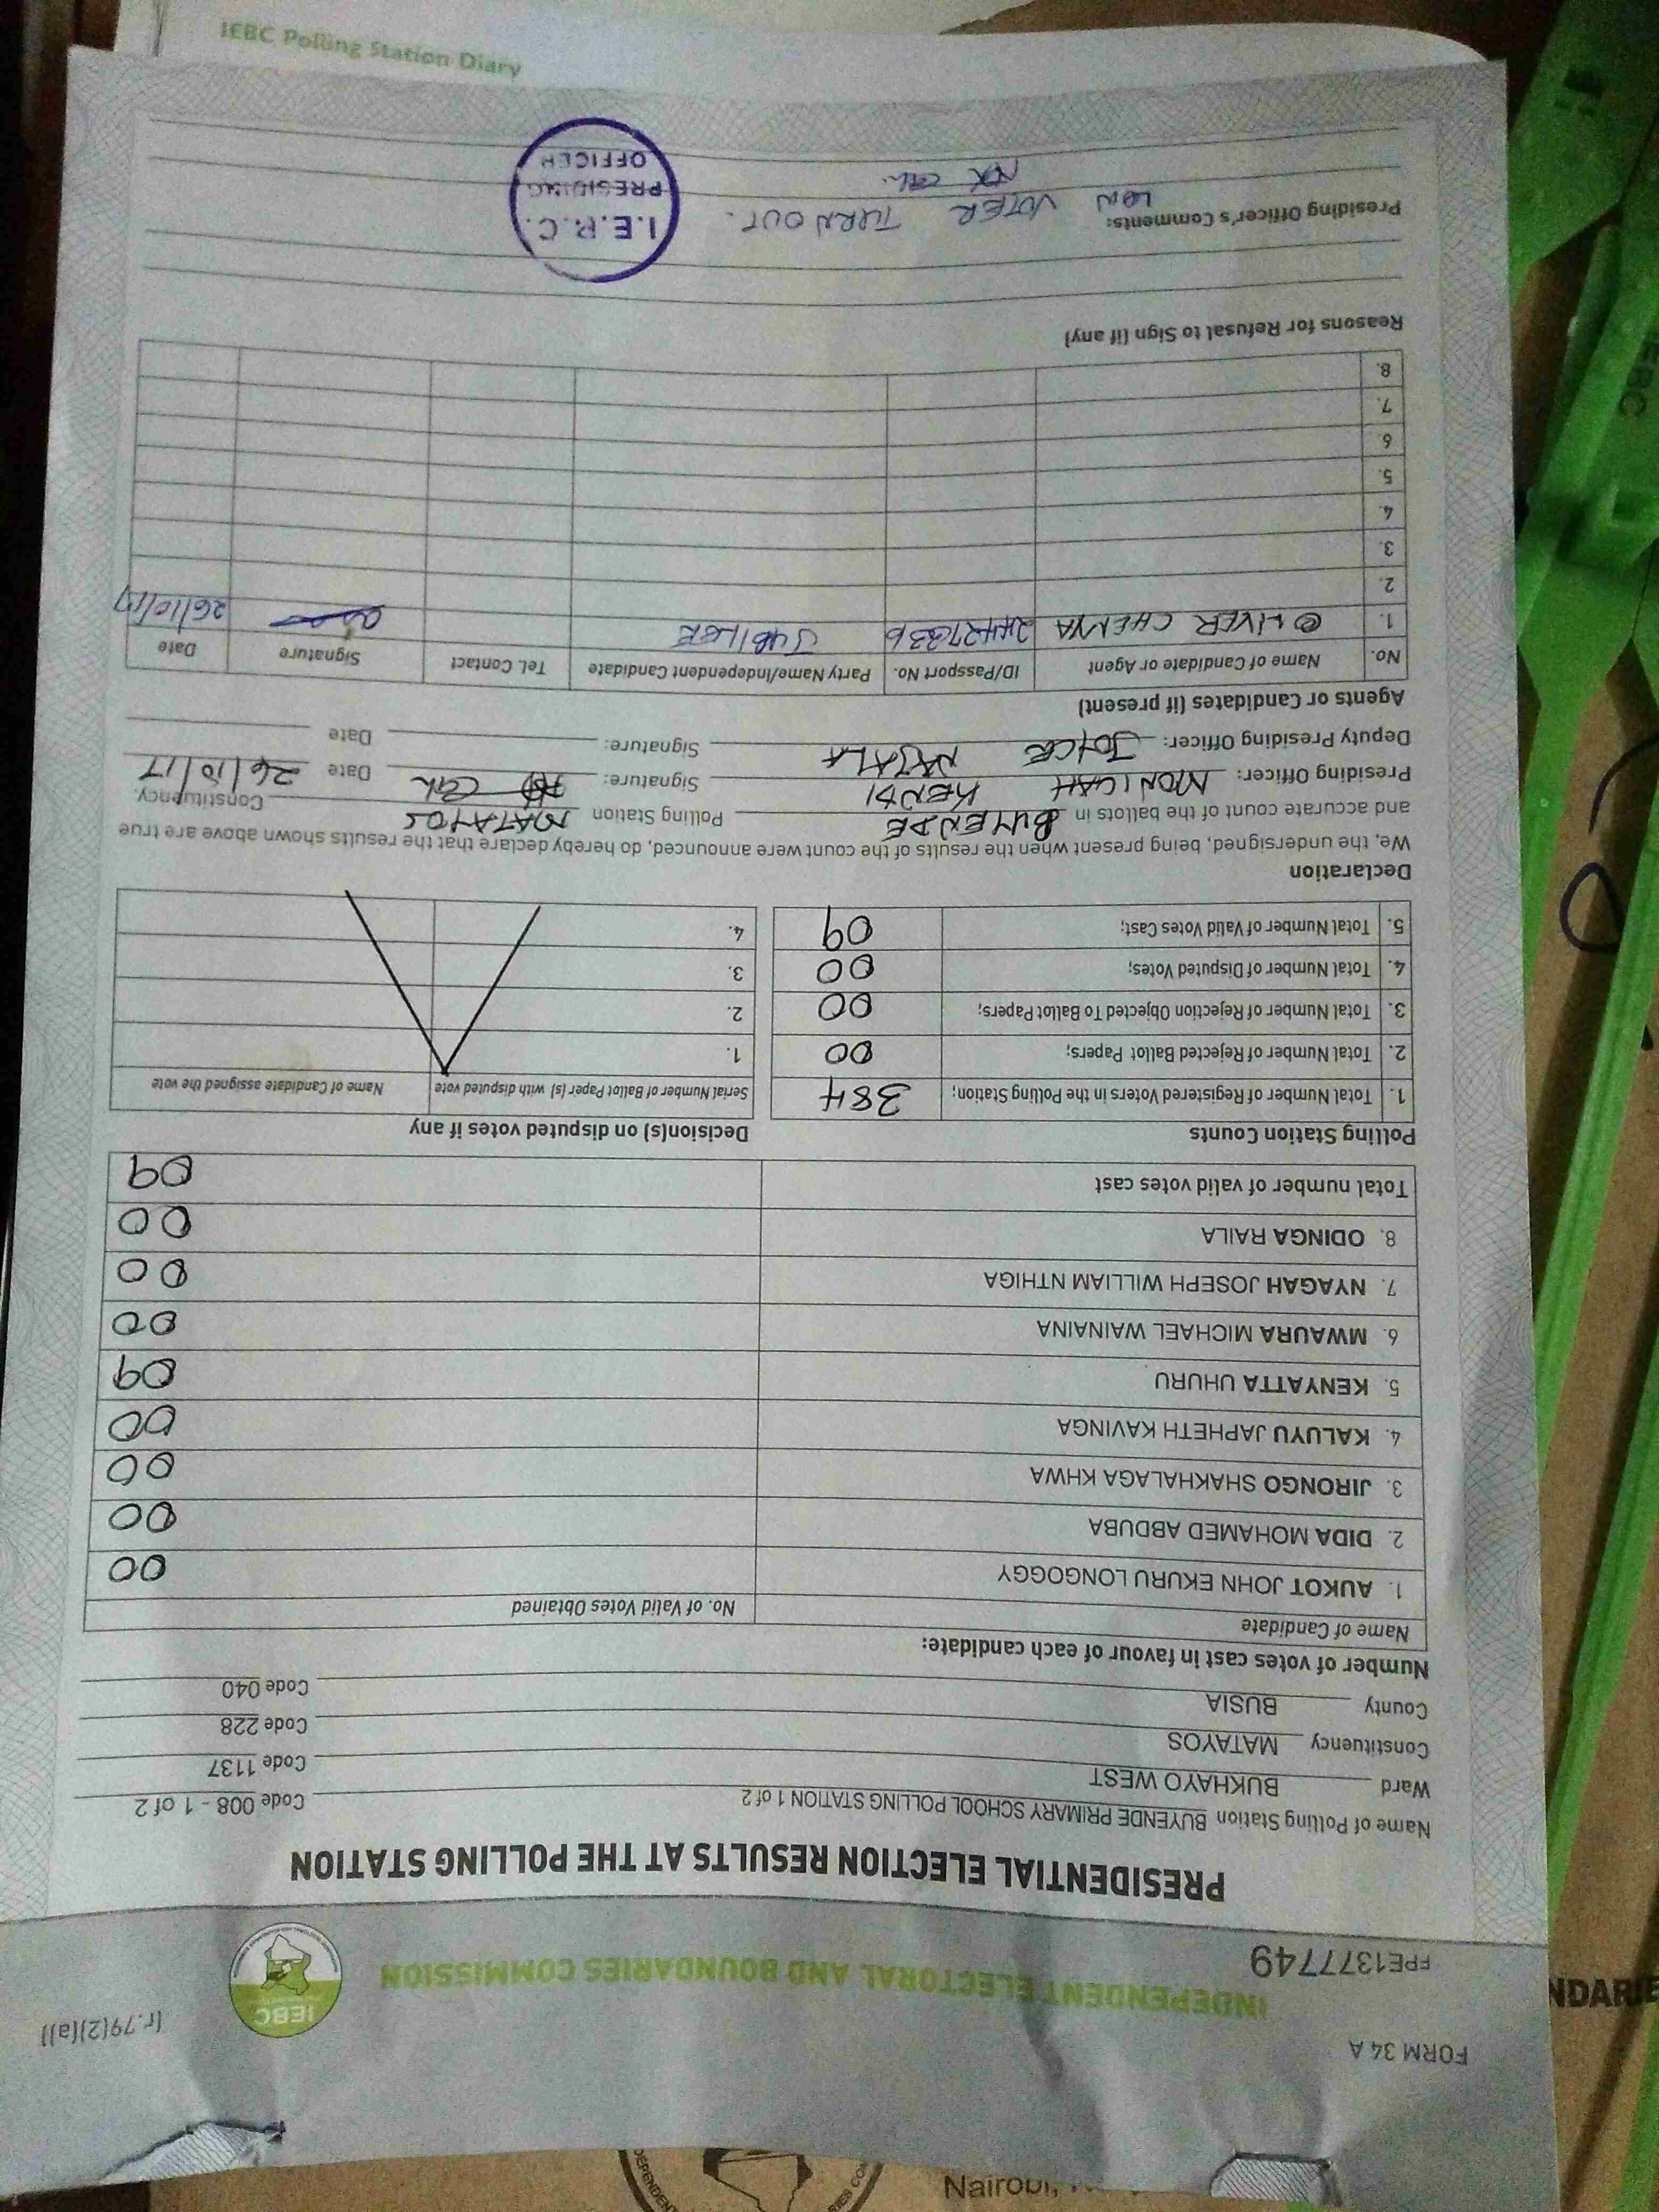 FORM 34 A
(r.79(2)(a))
INDEPENDENT ELECTORAL AND BOUNDARIES COMMISSION
IEBC
FPE1377749
PRESIDENTIAL ELECTION RESULTS AT THE POLLING STATION
Name of Polling Station BUYENDE PRIMARY SCHOOL POLLING STATION 1 of 2 Code 008 - 1 of 2
Ward BUKHAYO WEST Code 1137
Constituency MATAYOS Code 228
County BUSIA Code 040
Number of votes cast in favour of each candidate:
Name of Candidate No. of Valid Votes Obtained
1. AUKOT JOHN EKURU LONGOGGY 00
2. DIDA MOHAMED ABDUBA 00
3. JIRONGO SHAKHALAGA KHWA 00
4. KALUYU JAPHETH KAVINGA 00
5. KENYATTA UHURU 09
6. MWAURA MICHAEL WAINAINA 00
7. NYAGAH JOSEPH WILLIAM NTHIGA 00
8. ODINGA RAILA 00
Total number of valid votes cast 09
Polling Station Counts
1. Total Number of Registered Voters in the Polling Station; 384
2. Total Number of Rejected Ballot Papers; 00
3. Total Number of Rejection Objected To Ballot Papers; 00
4. Total Number of Disputed Votes; 00
5. Total Number of Valid Votes Cast; 09
Decision(s) on disputed votes if any
Serial Number of Ballot Paper (s) with disputed vote Name of Candidate assigned the vote
1.
2.
3.
4.
Declaration
We, the undersigned, being present when the results of the count were announced, do hereby declare that the results shown above are true
and accurate count of the ballots in BUYENDE Polling Station MATAYOS Constituency.
Presiding Officer: MONICAH KENDI Signature: Date 26/10/17
Deputy Presiding Officer: JOYCE NAJALA Signature: Date
Agents or Candidates (if present)
No. Name of Candidate or Agent ID/Passport No. Party Name/Independent Candidate Tel. Contact Signature Date
1. OLIVER CHEMA JUBILEE 26/10/17
2.
3.
4.
5.
6
7.
8.
Reasons for Refusal to Sign (if any)
Presiding Officer's Comments: LOW VOTER TURN OUT.
I.E.B.C.
PRESIDING
OFFICER
IEBC Polling Station Diary
Nairobi,
NDARIE